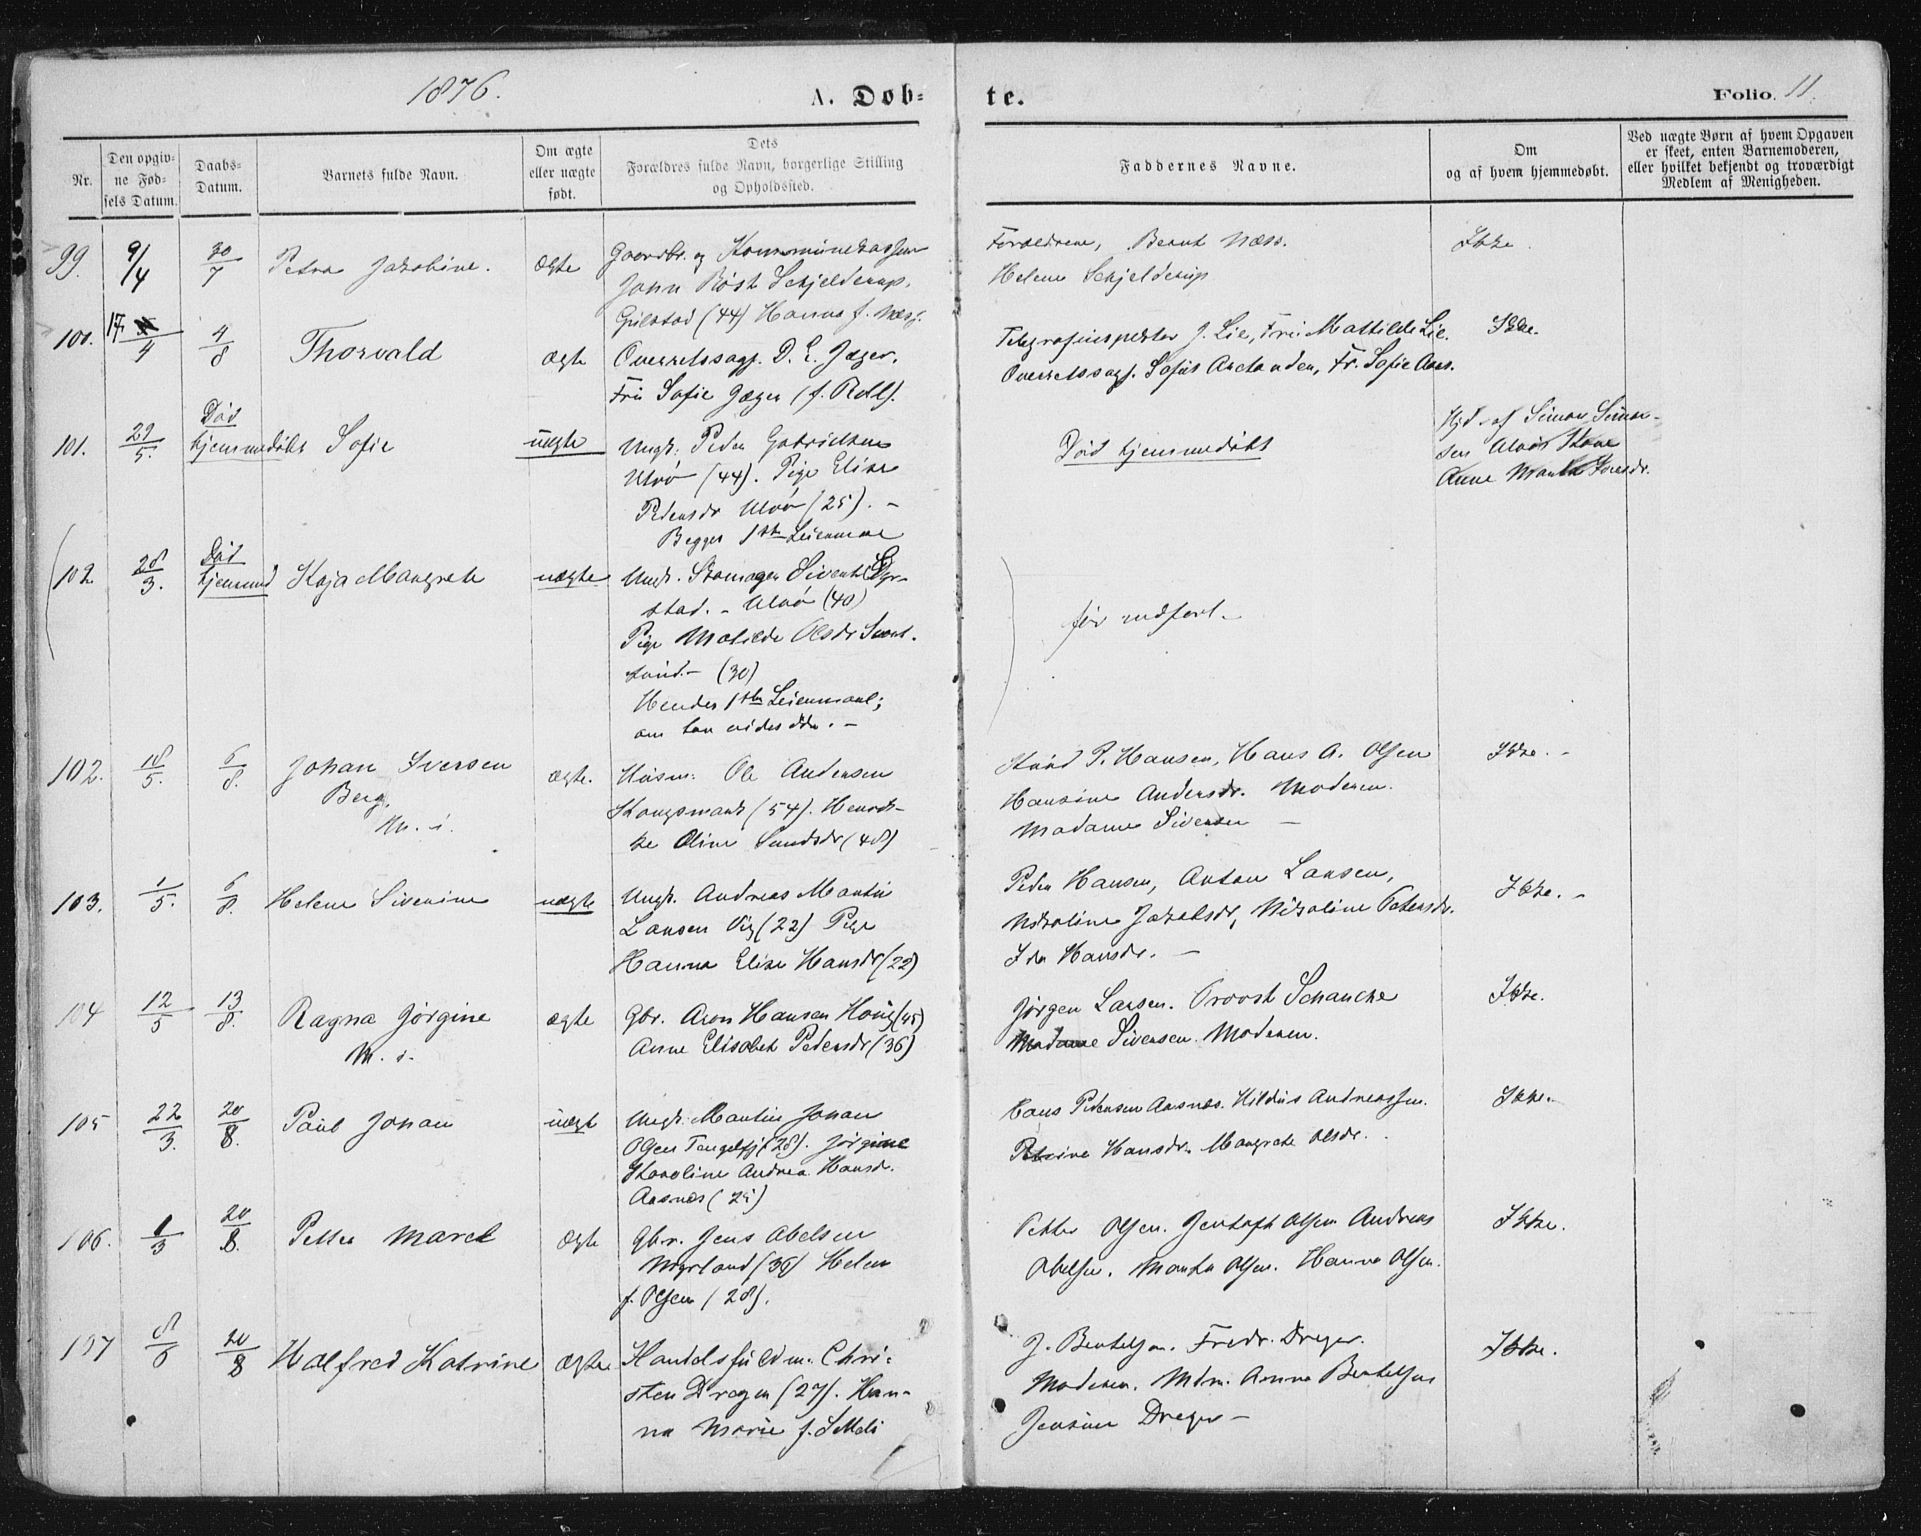 1876.
A. Døb-
te.
Folio. 11.
Nr.
Den opgiv-
ne Fød-
sels Datum.
Daabs-
Datum.
Barnets fulde Navn.
Om ægte
eller uægte
født.
Dets
Forældres fulde Navn, borgerlige Stilling
og Opholdssted.
Faddernes Navne.
Om
og af hvem hjemmedøbt.
Ved uægte Børn af hvem Opgaven
er skeet, enten Barnemoderen,
eller hvilket bekjendt og troværdigt
Medlem af Menigheden.
99. 9/4 30/7 Petra Jakobine. ægte
Gaardbr. og Kommunekasser
John Røst Schjelderup.
(44) Hanna f. Næss.
Forældrene, Bernt Næss.
Helene Schjelderup
Ikke.
100. 17/4 4/8 Thorvald ægte
Overretssagf. D. E. Jæger.
Fru Sofie Jæger (f. Roll).
Telegrafinspektør J. Lie, Fru Mathilde Lie.
Overretssagf. Sofus Arctander, Fr. Sofie Aars.
Ikke.
101. 29/5. Død
hjemmedøbt Sofie uægte
Ungk. Peder Gabrielsen
Ulvø (44). Pige Elise
Pedersdr Ulvø (25). -
Begges 1ste Leiermaal
Død hjemmedøbt
Hjd. af Simon Simon-
sen Ulvøs Kone
Anne Martha Iversdr.
102. 28/3. Død
hjemmed Kaja Margrete uægte
Ungk. Skomager Sivert
stad. - Ulvø (40)
Pige Matilde Olsdr Sort-
land. - (30)
Hendes 1ste Leiermaal;
om han vides ikke. -
før indført. -
102. 18/5. 6/8. Johan Iversen
Berg.
M. i.
ægte.
Husm. Ole Andersen
Kongsmark (54). Henrik-
ke Oline (48)
Knud P. Hansen, Hans A. Olsen
Hansine Andersdr. Moderen.
Madame Sivertsen -
Ikke. -
103. 1/5. 6/8. Helene Siverine uægte
Ungk. Andreas Martin
Larsen Vig (22) Pige
Hanna Elise Hansdr (22)
Peder Hansen, Anton Larsen,
Nikoline Jakobsdr, Nikoline Petersdr.
Ida Hansdr. -
Ikke. -
104 12/5 13/8. Ragna Jørgine
M. i.
ægte
Gbr. Aron Hansen Haug (45)
Anne Elisabet Pedersdr (36)
Jørgen Larsen. Provst Schancke
Madame Sivertsen. Moderen.
Ikke.
105 22/3. 20/8. Paul Johan uægte
Ungk. Martin Johan
Olsen Tengelfj (28). Jørgine
Karoline Andrea Hansdr.
Aasnæs (25)
Hans Pedersen Aasnæs. Hildus Andreassen.
Petrine Hansdr. Margrete Olsdr.
Ikke. -
106. 1/3 20/8. Petter Marel ægte
Gbr. Jens Abelsen
Myrland (36) Helen
f. Olsen (28).
Petter Olsen. Jentoft Olsen Andreas
Abelsen. Martha Olsen. Hanna Olsen.
Ikke.
107 8/6 20/8 Walfred Katrine ægte
Handelsfuldm. Chri-
sten Dreyer (27). Han-
na Marie f.
J. Bertelsen. Fredr. Dreyer.
Moderen. Mdm. Anna Bertelsen
Jensine Dreyer -
Ikke.